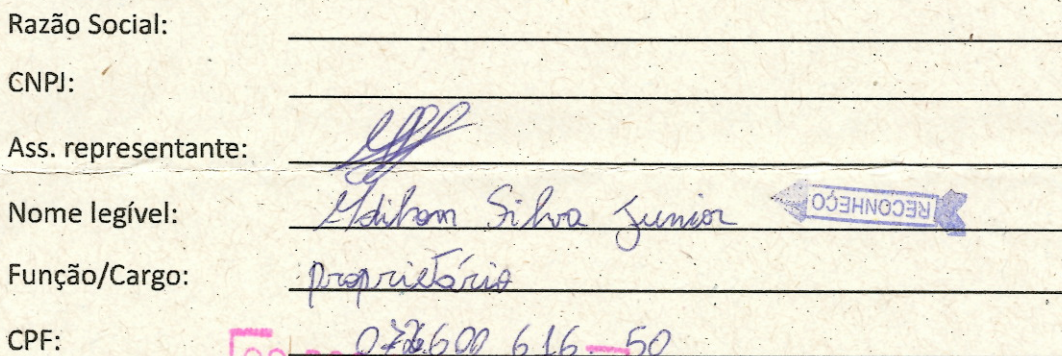 Razão Social:
CNPJ:
Ass. representante:
Nome legível: Silva Junior RECONHEÇO
Função/Cargo: proprietário
CPF: 616-50